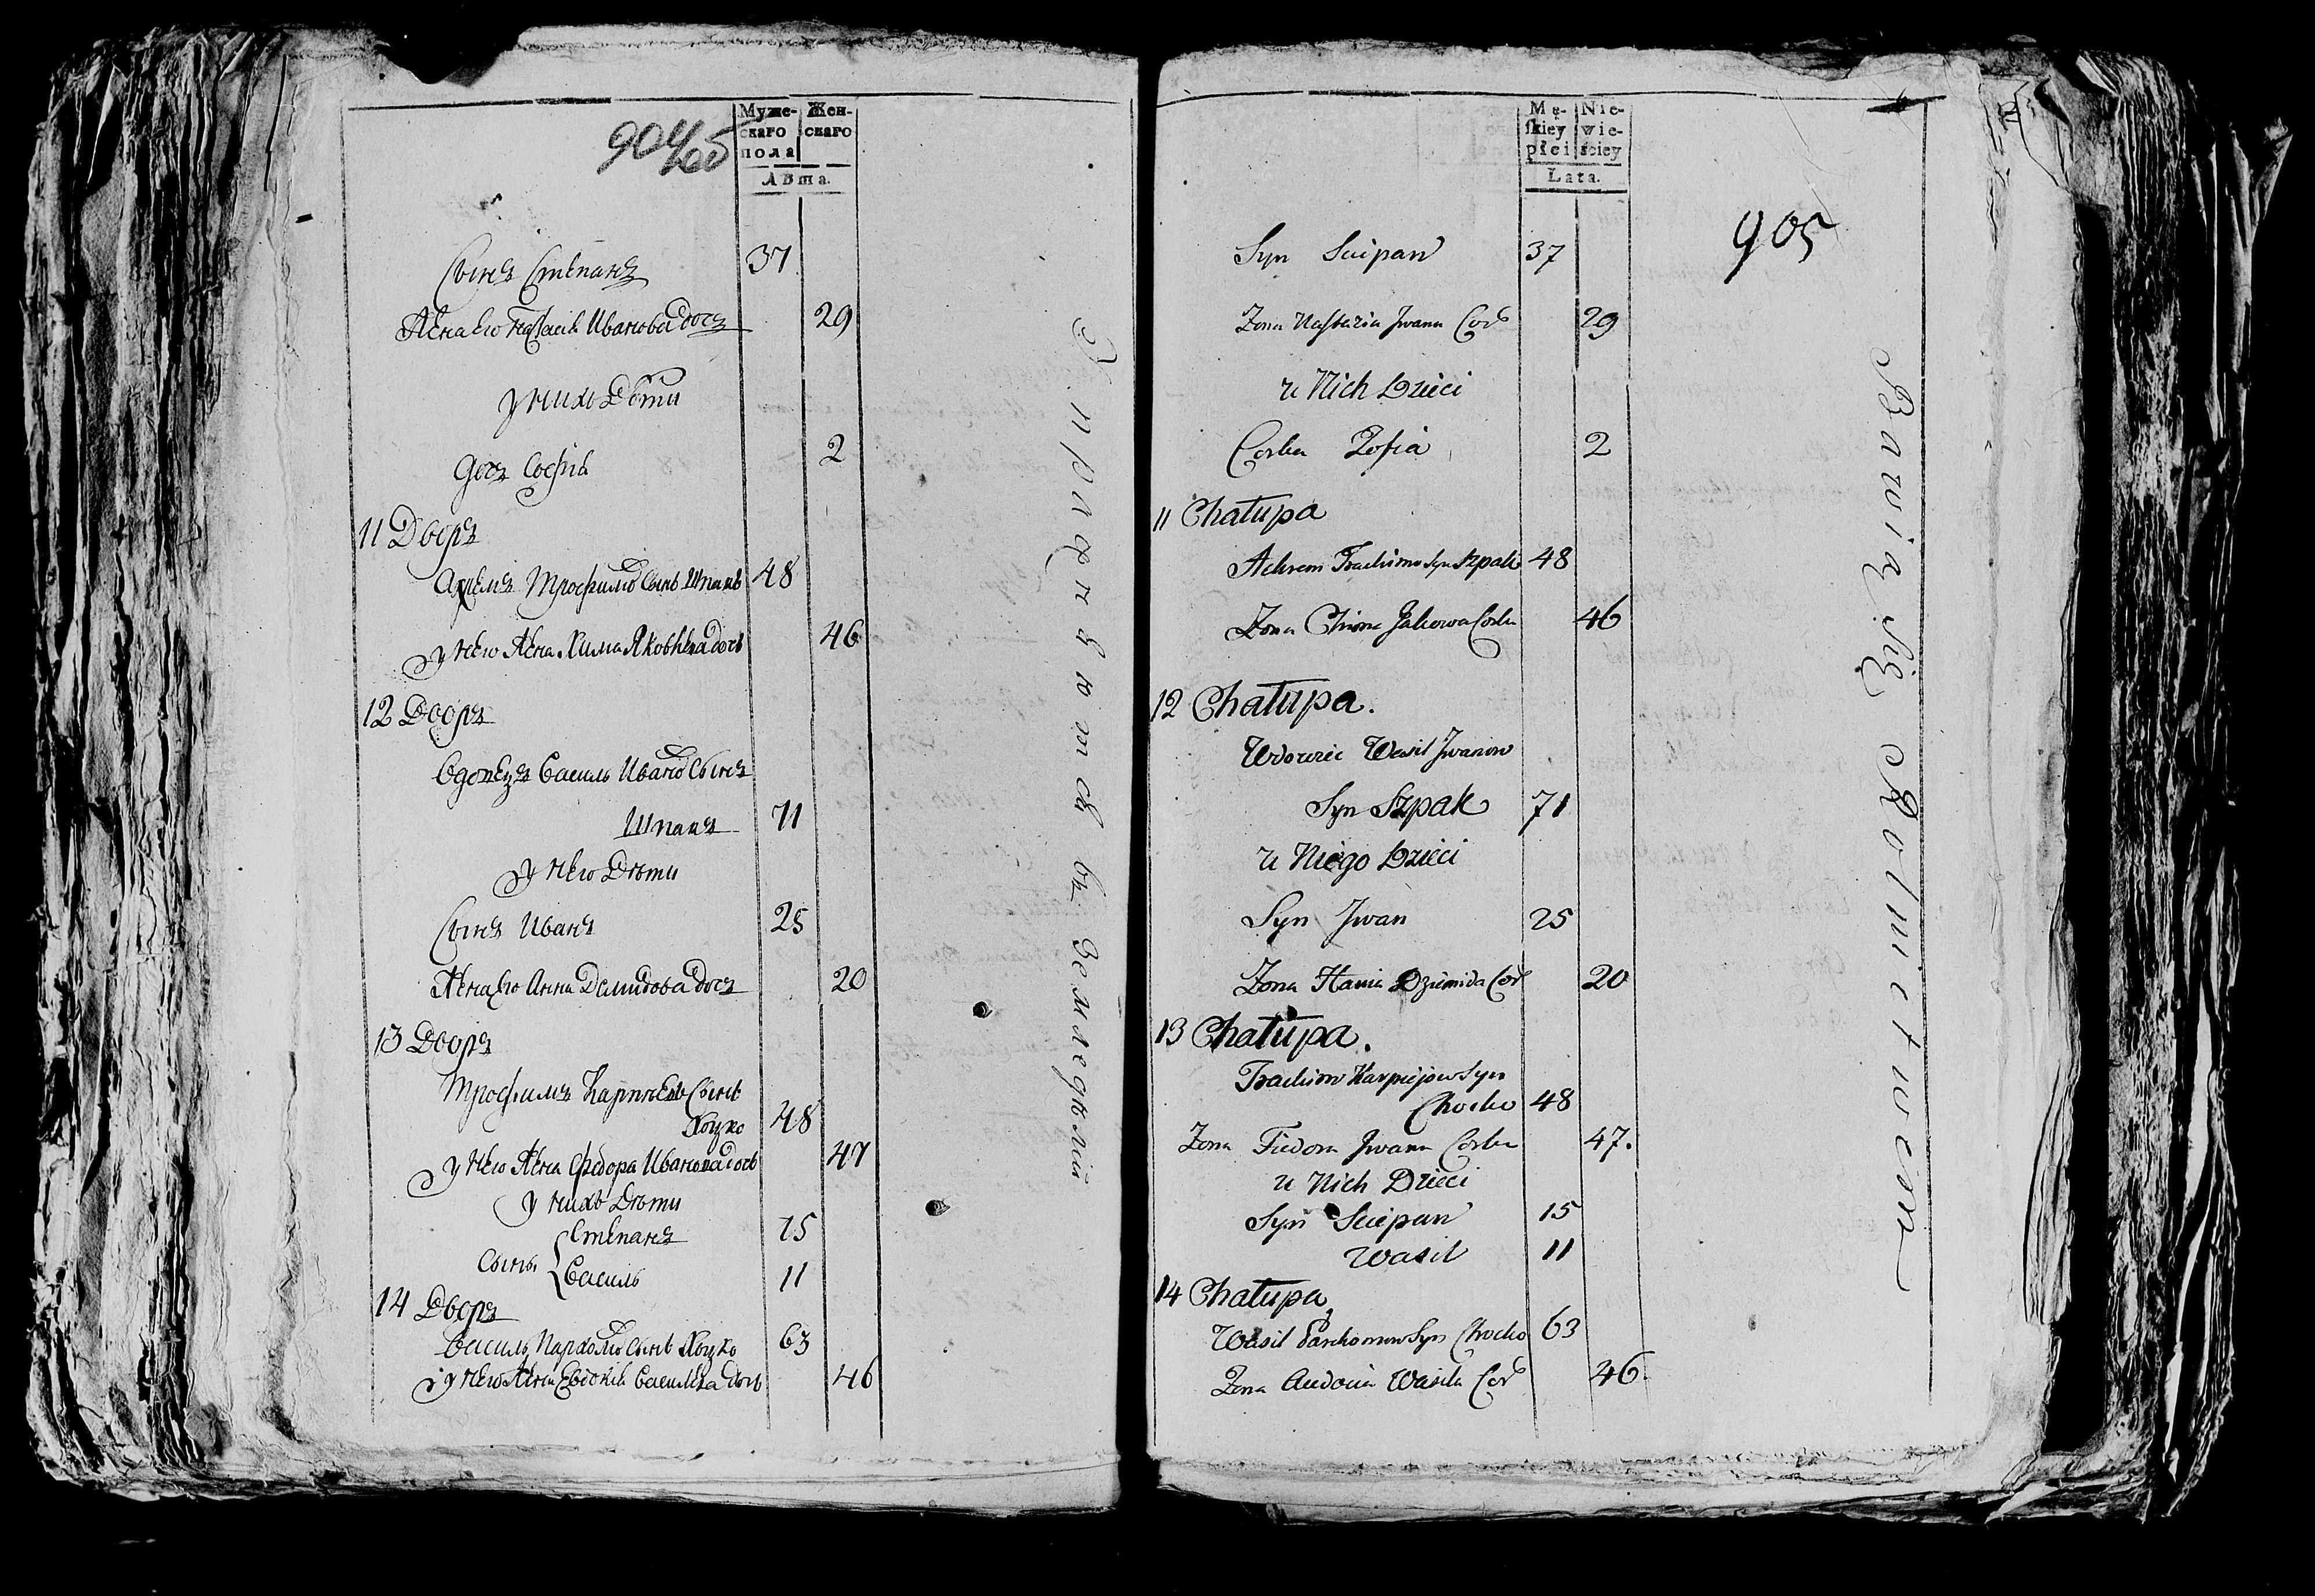 904об
Муже-
скаго
пола
Жен-
скаго
Лѣта.
Сынъ Степанъ 37
Жена его Настасія Иванова дочъ 29
у нихъ Дѣти
Дочъ Софія 2
11 Дворъ
Ахремъ Трофимовъ Сынъ Шпакъ 48
у него Жена Хима Яковлева дочь 46
12 Дворъ
Вдовецъ Василь Ивановъ Сынъ
Шпакъ 71
у него Дѣти
Сынъ Иванъ 25
Жена его Анна Демидова дочъ 20
13 Дворъ
Трофимъ Карпѣевъ Сынъ
Хоцко 48
у него Жена Федора Иванова дочь 47
у нихъ Дѣти
Сыны Степанъ 15
Василь 11
14 Дворъ
Василь Пархомовъ Сынъ Хоцко 63
у него Жена Евдокія Васильева дочь 46
Упражняются въ Земледѣліи
905
Mę-
ſkiey
płci
Nie-
wie-
ściey
Lata.
Syn Sciepan 37
Zona Nastazia Jwana Cor 29
u Nich Dzieci
Corka Zofia 2
11 Chałupa
Achrem Trachimow Syn Szpak 48
Zona Chima Jakowa Corka 46
12 Chałupa.
Wdowiec Wasil Jwanow
Syn Szpak 71
u Niego Dzieci
Syn Jwan 25
Zona Hania Dziemida Cor 20
13 Chałupa.
Trachim Karpiejow Syn
Chocko 48
Zona Fiedora Jwana Corka 47.
u Nich Dzieci
Syn Sciepan 15
Wasil 11
14 Chałupa
Wasil Parchomow Syn Chocko 63
Zona Audocia Wasila Cor 46.
Bawią się Rolnictwem